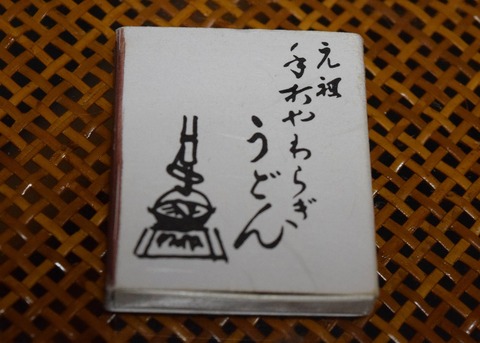 元祖
手打やわらぎ
うどん